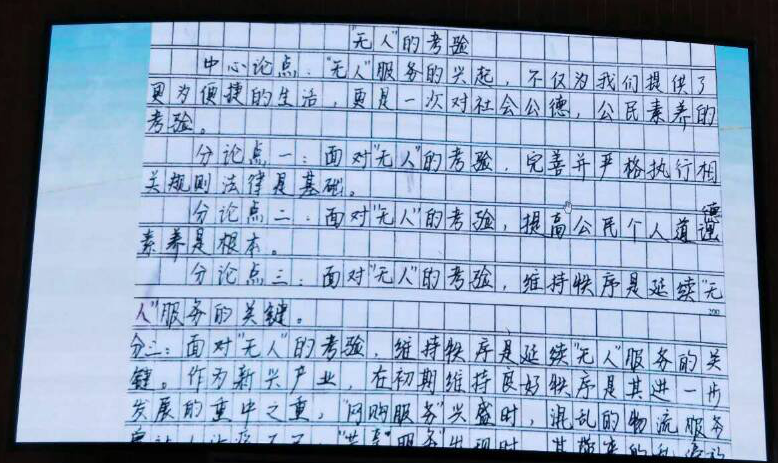 "无人"的考验
中心论点:"无人"服务的兴起,不仅为我们提供了
更为便捷的生活,更是一次对社会公德,公民素养的
考验。
分论点一:面对"无人"的考验,完善并严格执行相
关规则法律是基础。
分论点二:面对"无人"的考验,提高公民个人道德
素养是根本。
分论点三:面对"无人"的考验,维持秩序是延续"无
人"服务的关键。
200
分三:面对"无人"的考验,维持秩序是延续"无人"服务的关
键。作为新兴产业,在初期维持良好秩序是其进一步
发展的重中之重,"网购服务"兴盛时,混乱的物流服务
"共享"服务出现时